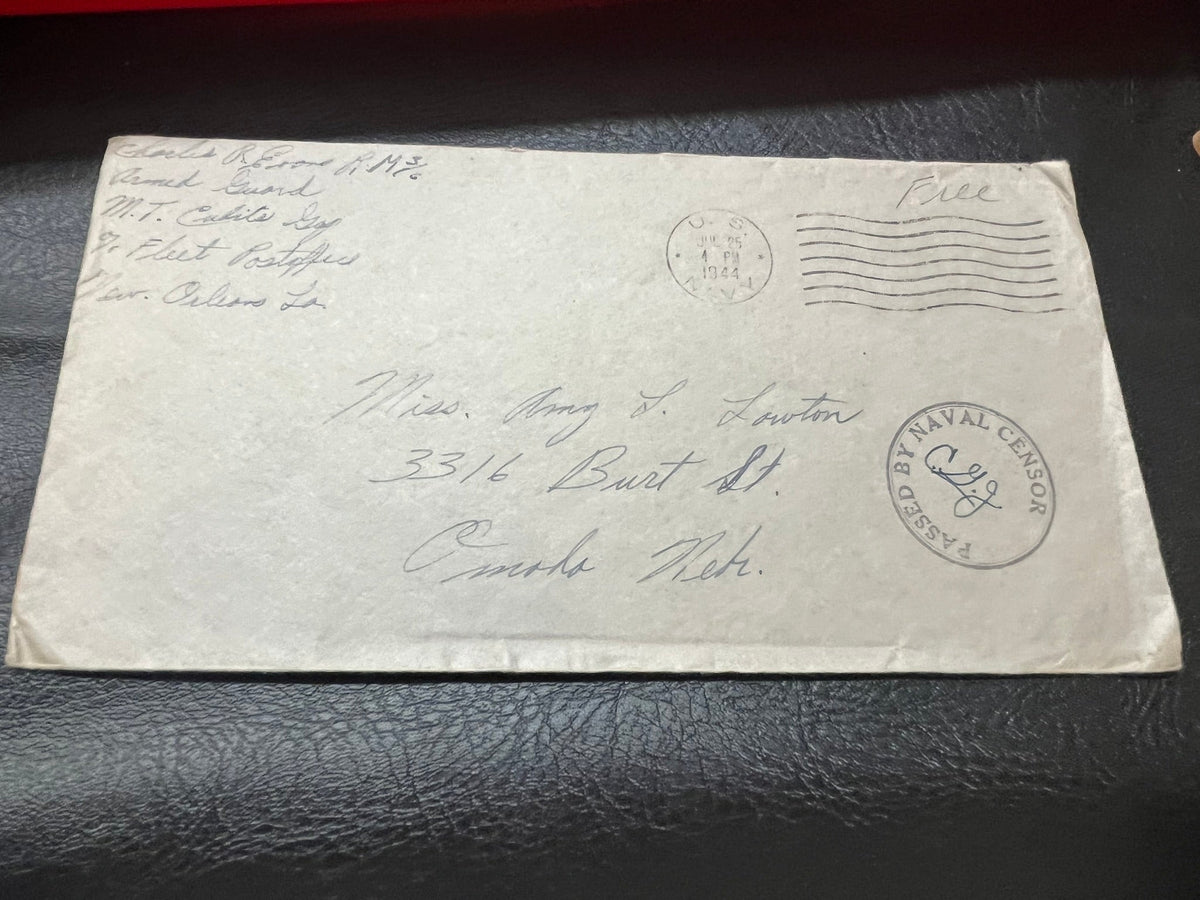 Charles R. Evans R.M 3/c
Armed Guard
M.T. Cubits Gap
c/o Fleet Postoffice
New. Orleans La.
Free
U. S.
JUL 25
4 PM
1944
NAVY
Miss. Amy L. Lawton
3316 Burt St.
Omaha Nebr.
PASSED BY NAVAL CENSOR